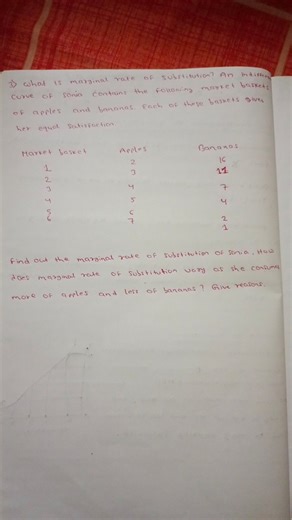 1) What is marginal rate of substitution? An indifference
curve of Sonia contains the following market baskets
of apples and bananas. Each of these baskets gives
her equal satisfaction
Market basket Apples Bananas
1 2 16
2 3 11
3 4 7
4 5 4
5 6 2
6 7 1
Find out the marginal rate of substitution of Sonia. How
does marginal rate of substitution vary as she consumes
more of apples and less of bananas? Give reasons.